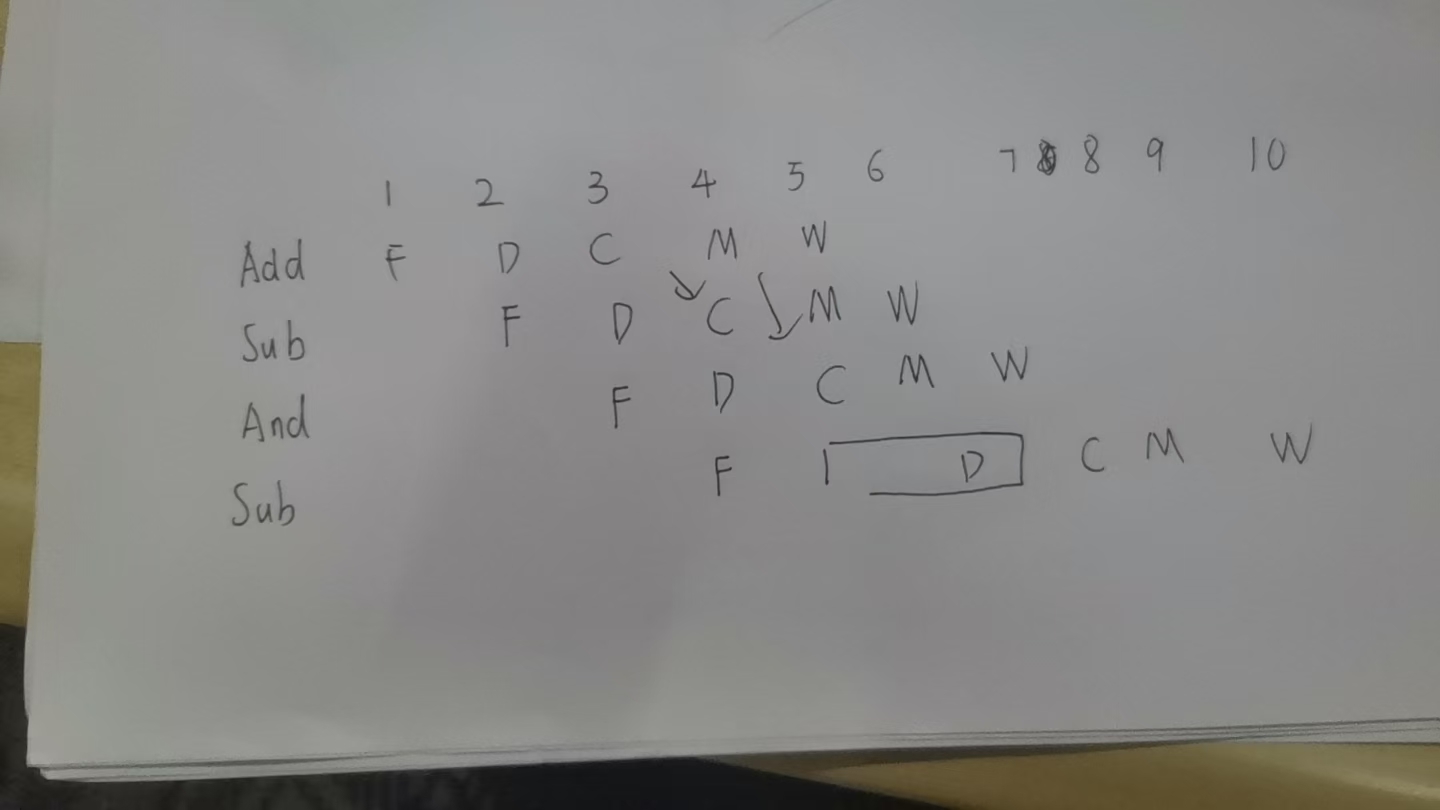 1 2 3 4 5 6 7 8 9 10
Add F D C M W
Sub F D C M W
And F D C M W
Sub F D C M W